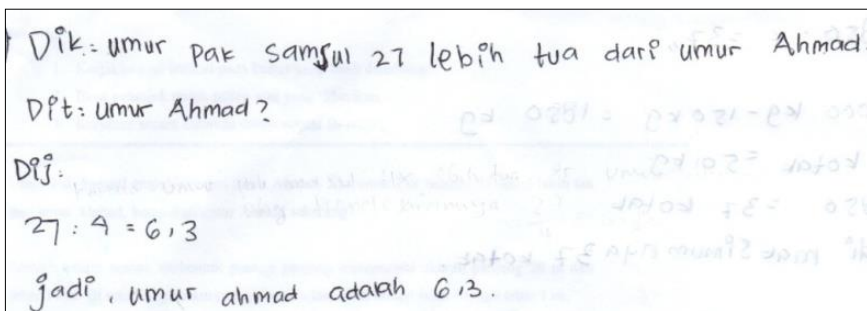 Dik: umur pak samsul 27 lebih tua dari umur Ahmad.
Dit: umur Ahmad?
Dij:
27 : 4 = 6,3
jadi, umur ahmad adalah 6,3.